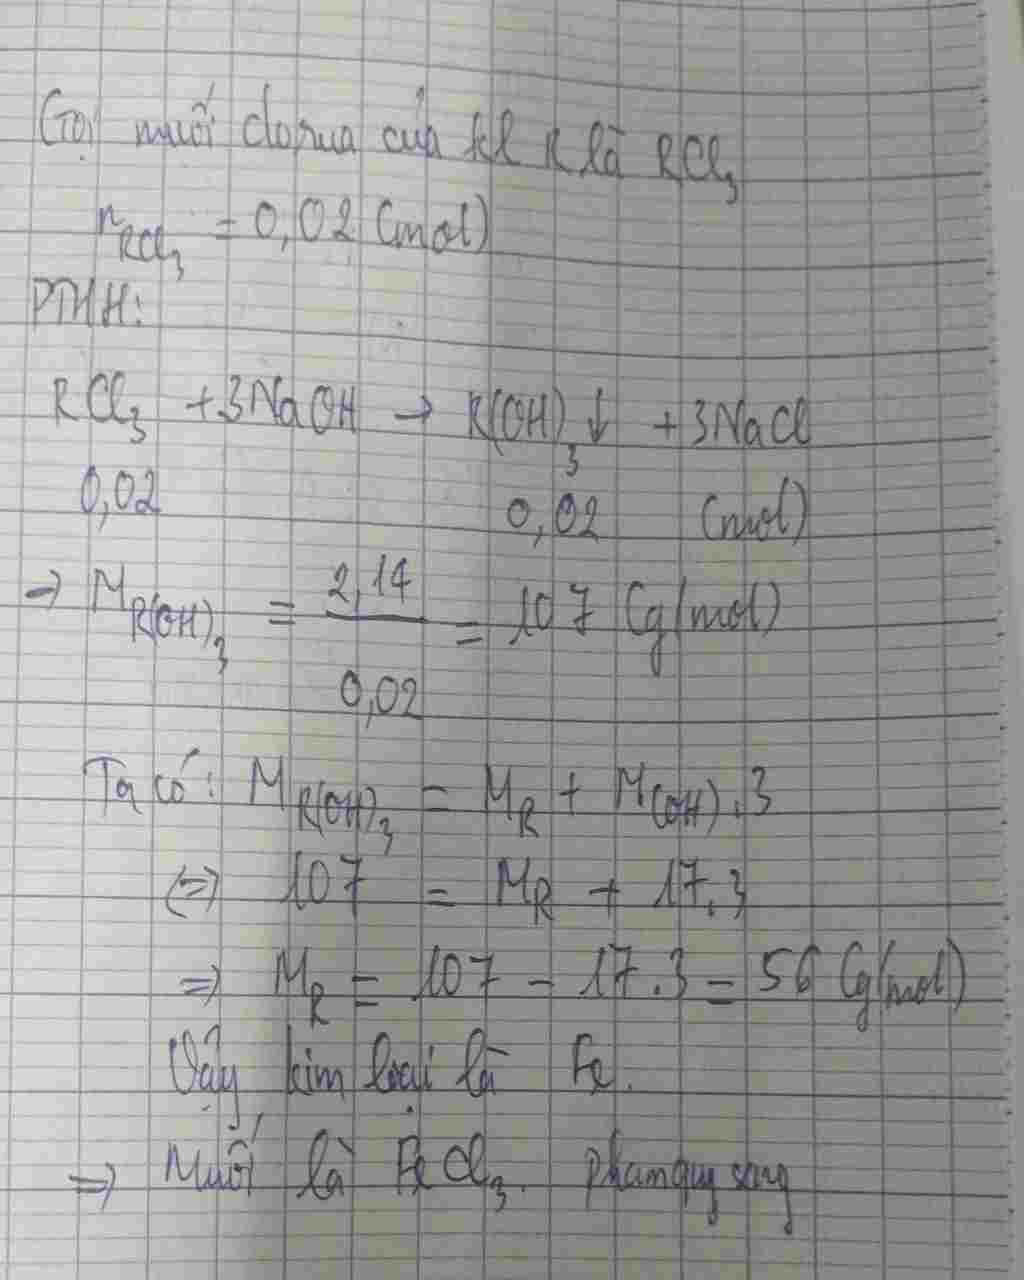 Gọi muối clorua của kl R là RCl₃
nRCl₃ = 0,02 (mol)
PTHH:
RCl₃ + 3NaOH → R(OH)₃↓ + 3NaCl
0,02 0,02 (mol)
→ M R(OH)₃ = 2,14 / 0,02 = 107 (g/mol)
Ta có: M R(OH)₃ = M R + M (OH) . 3
(=) 107 = M R + 17.3
=> M R = 107 - 17.3 = 56 (g/mol)
Vậy kim loại là Fe.
=> Muối là FeCl₃. phamquysang